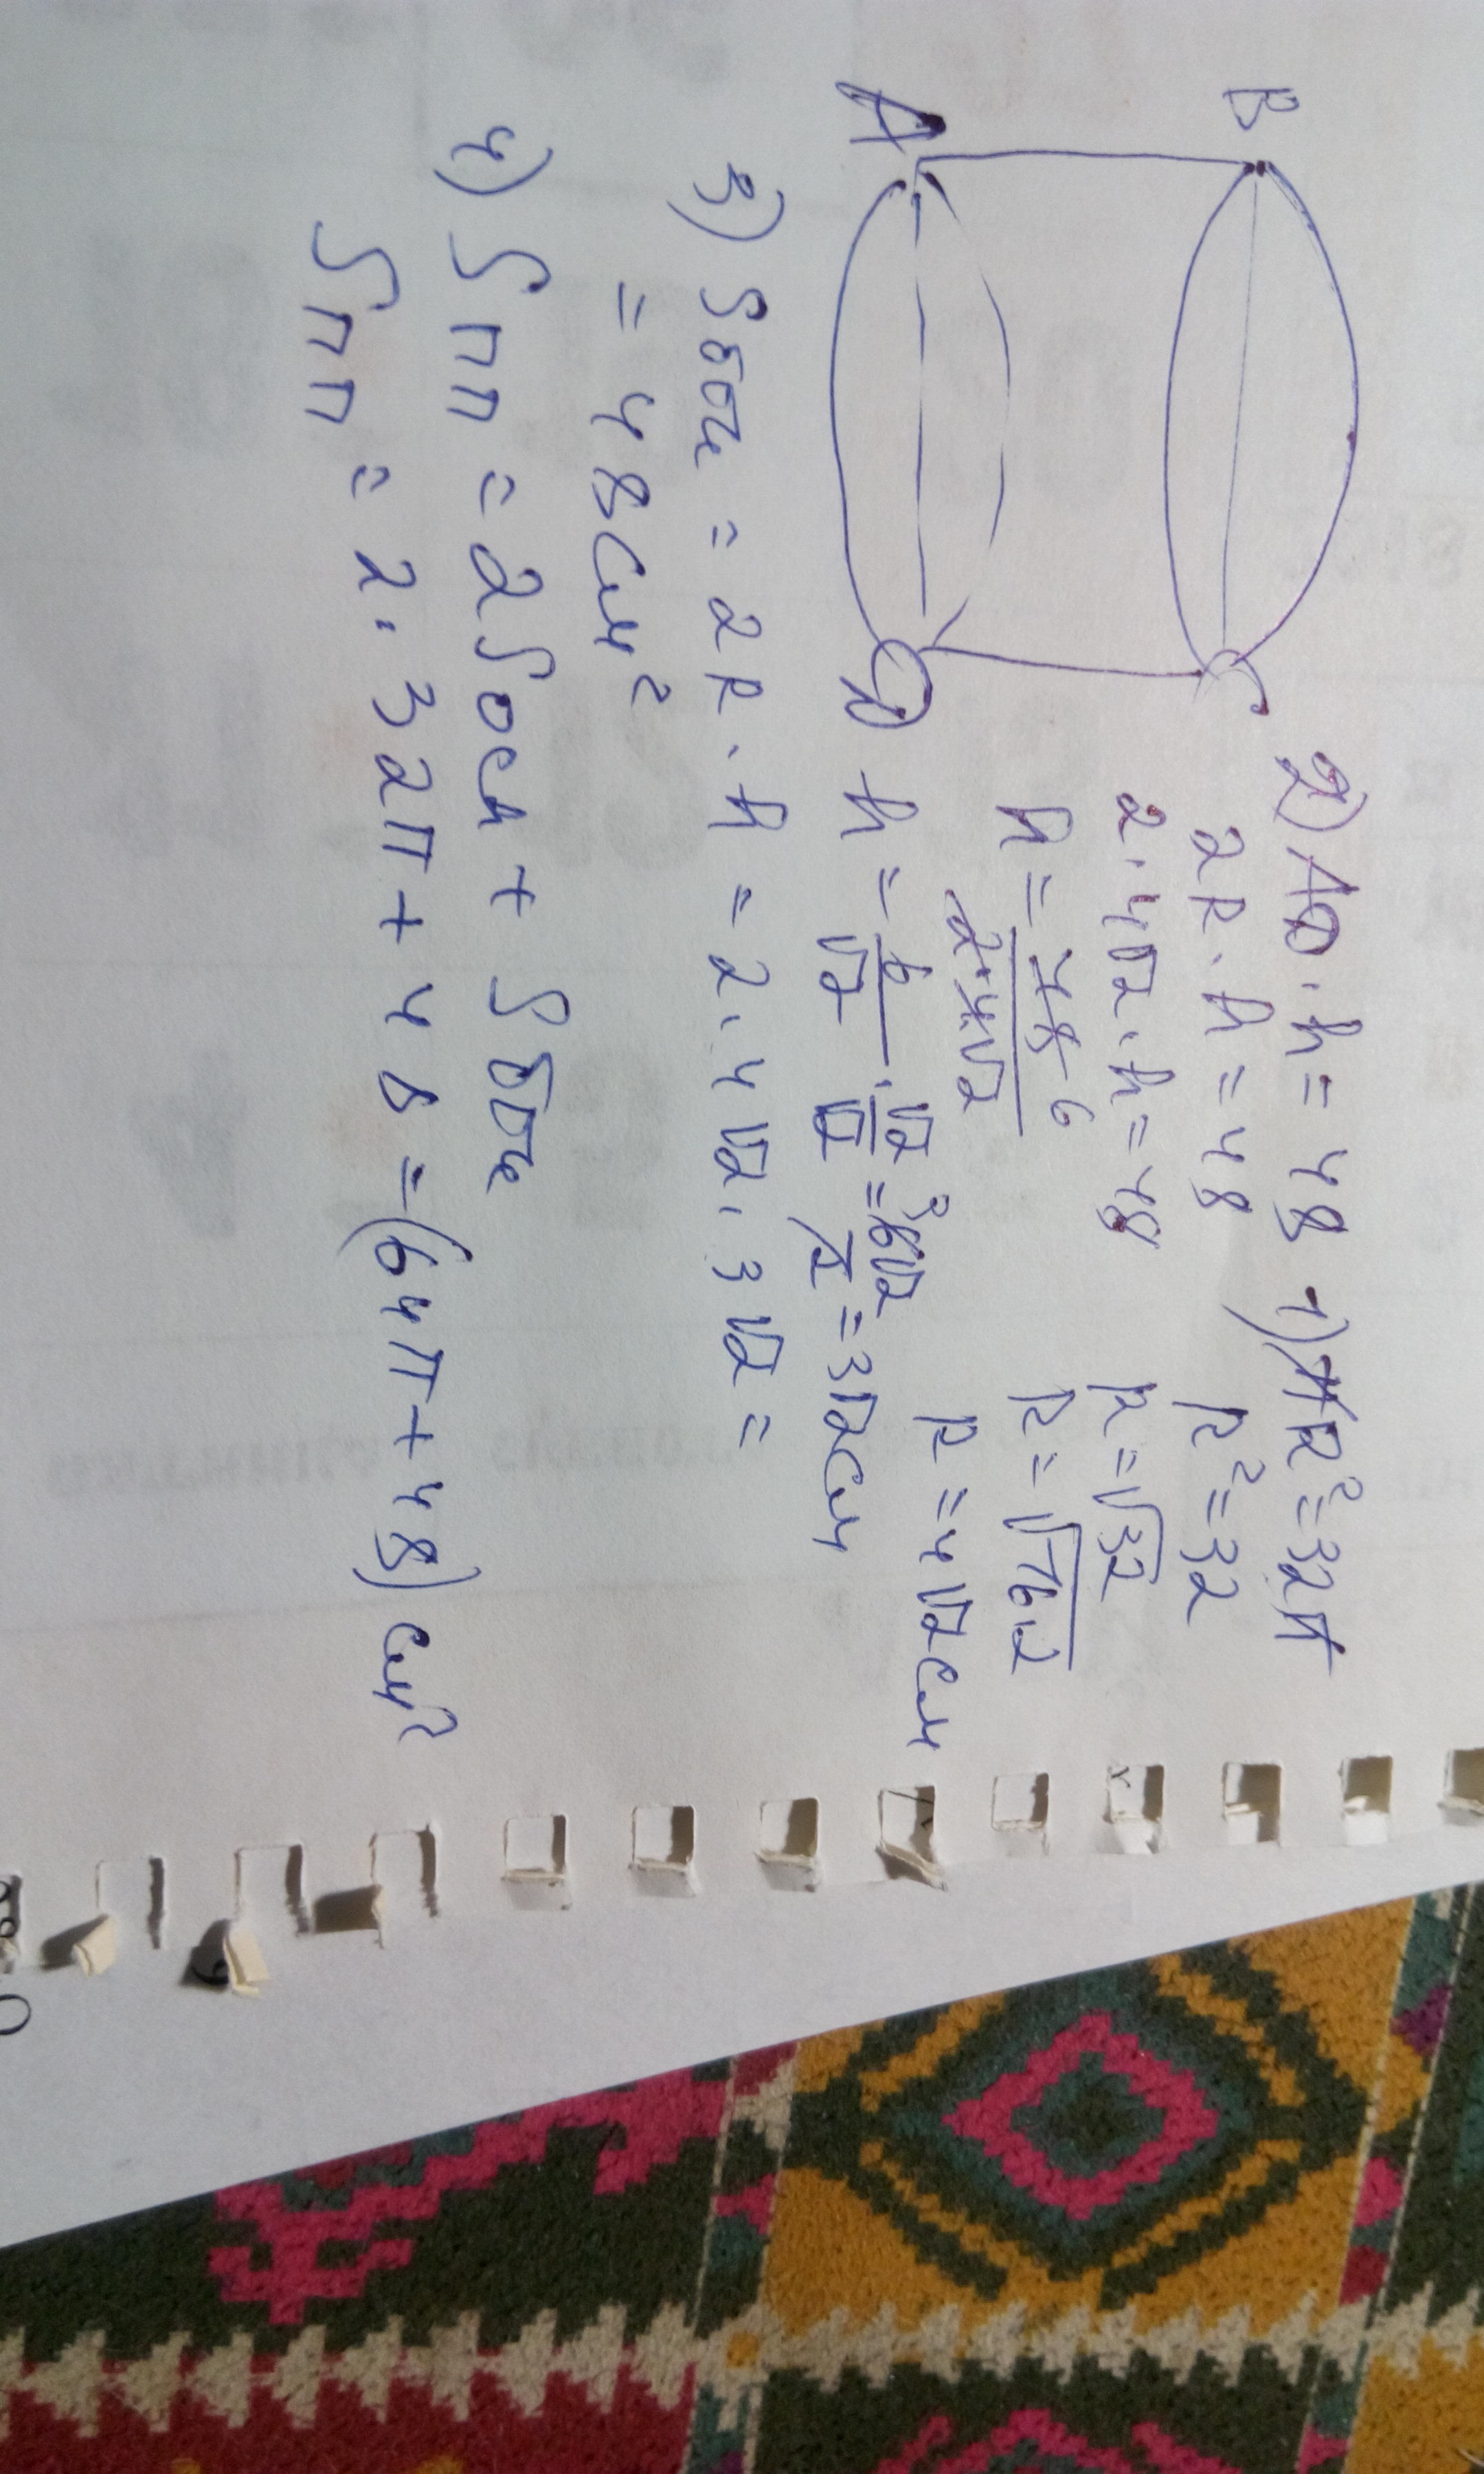 B
C
A
D
1) πR² = 32π
R² = 32
R = √32
R = √16·2
R = 4√2 см
2) AD · h = 48
2R · h = 48
2 · 4√2 · h = 48
h = 48 6 / 2·4√2
h = 6/√2 · √2/√2 = 3 6√2/2 = 3√2 см
3) Sбок = 2R · h = 2 · 4√2 · 3√2 =
= 48 см²
4) Sпп = 2Sосн + Sбок
Sпп = 2 · 32π + 48 = (64π + 48) см²